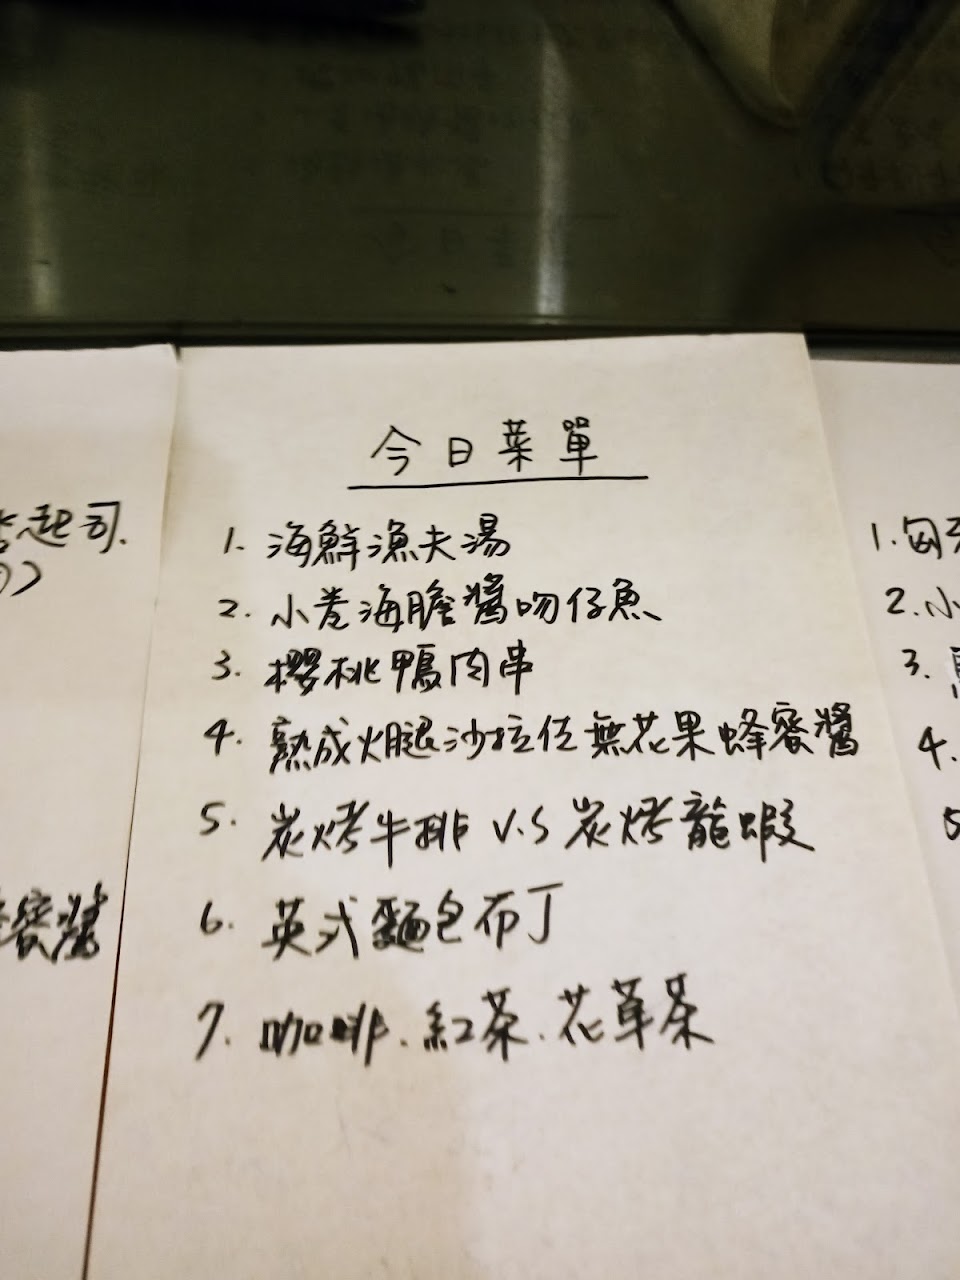 今日菜單
1. 海鮮漁夫湯
2. 小卷海膽醬吻仔魚
3. 櫻桃鴨肉串
4. 熟成火腿沙拉佐無花果蜂蜜醬
5. 炭烤牛排 V.S 炭烤龍蝦
6. 英式麵包布丁
7. 咖啡.紅茶.花草茶
起司.
蜜醬
1.
2.小
3.
4.
5